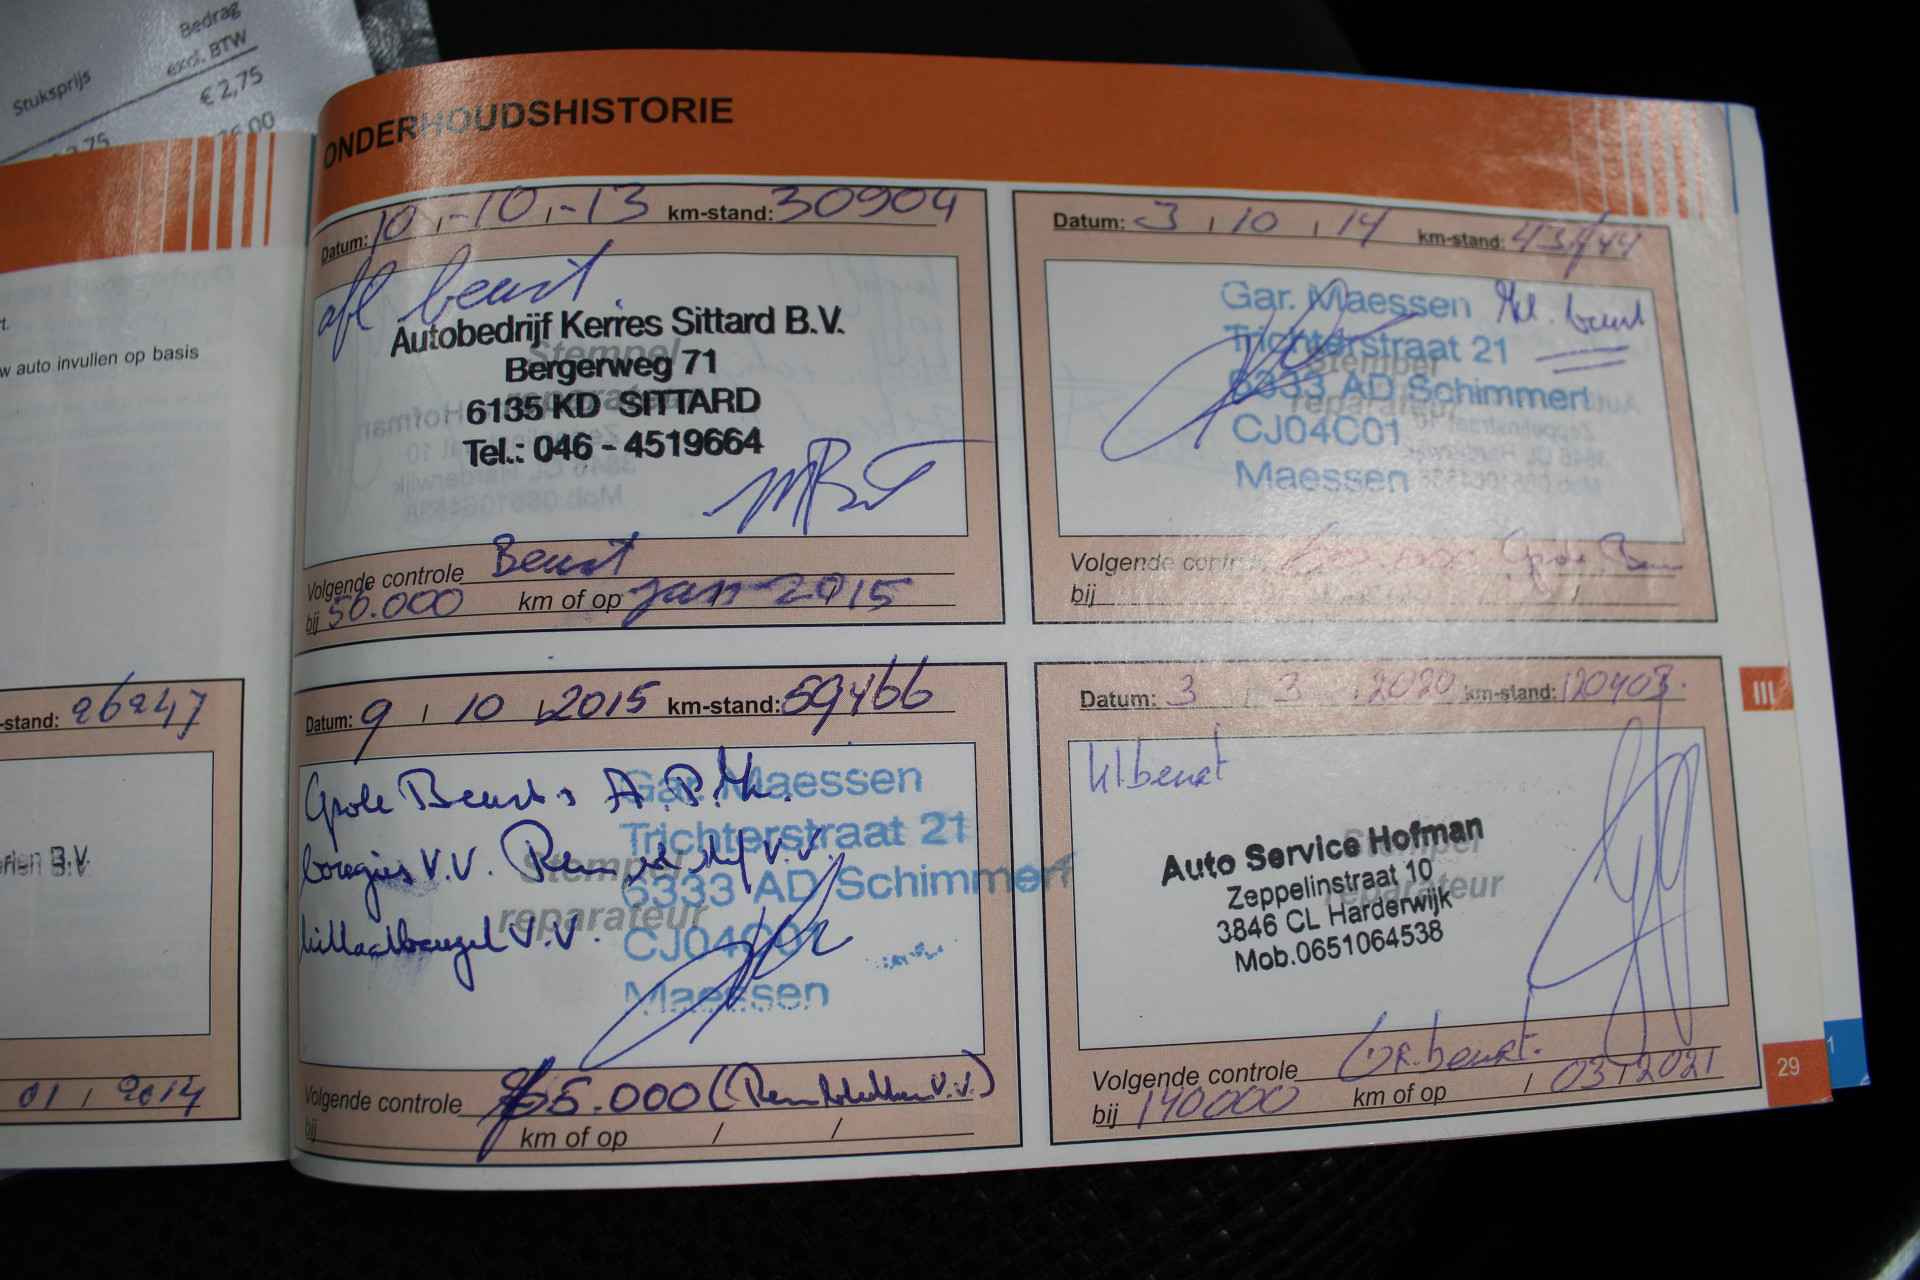 Bedrag
Stuksprijs
excl. BTW
€ 2,75
ONDERHOUDSHISTORIE
w auto invullen op basis
-stand: 26247
B.V.
01 / 2014
Datum: 10 , -10 , -13 km-stand: 30904
afl beurt
Autobedrijf Kerres Sittard B.V.
Bergerweg 71
6135 KD SITTARD
Tel.: 046 - 4519664
Stempel
reparateur
Volgende controle Beurt
bij 50.000 km of op jan 2015
Datum: 3 , 10 , 14 km-stand:
Gar. Maessen
Trichterstraat 21
6333 AD Schimmert
CJ04C01
Maessen
Stempel
reparateur
beurt
Volgende controle
bij
Datum: 9 , 10 , 2015 km-stand: 59466
Grote Beurt A.P.K.
V.V. V.V.
V.V.
Gar. Maessen
Trichterstraat 21
6333 AD Schimmert
CJ04C01
Maessen
Stempel
reparateur
Volgende controle 5.000 ( V.V.)
bij km of op / /
Datum: 3 , 3 , 2020 km-stand: 120403.
kl beurt
Auto Service Hofman
Zeppelinstraat 10
3846 CL Harderwijk
Mob.0651064538
Stempel
reparateur
Volgende controle Gr. beurt.
bij 140000 km of op / 03 / 2021
III
29
1